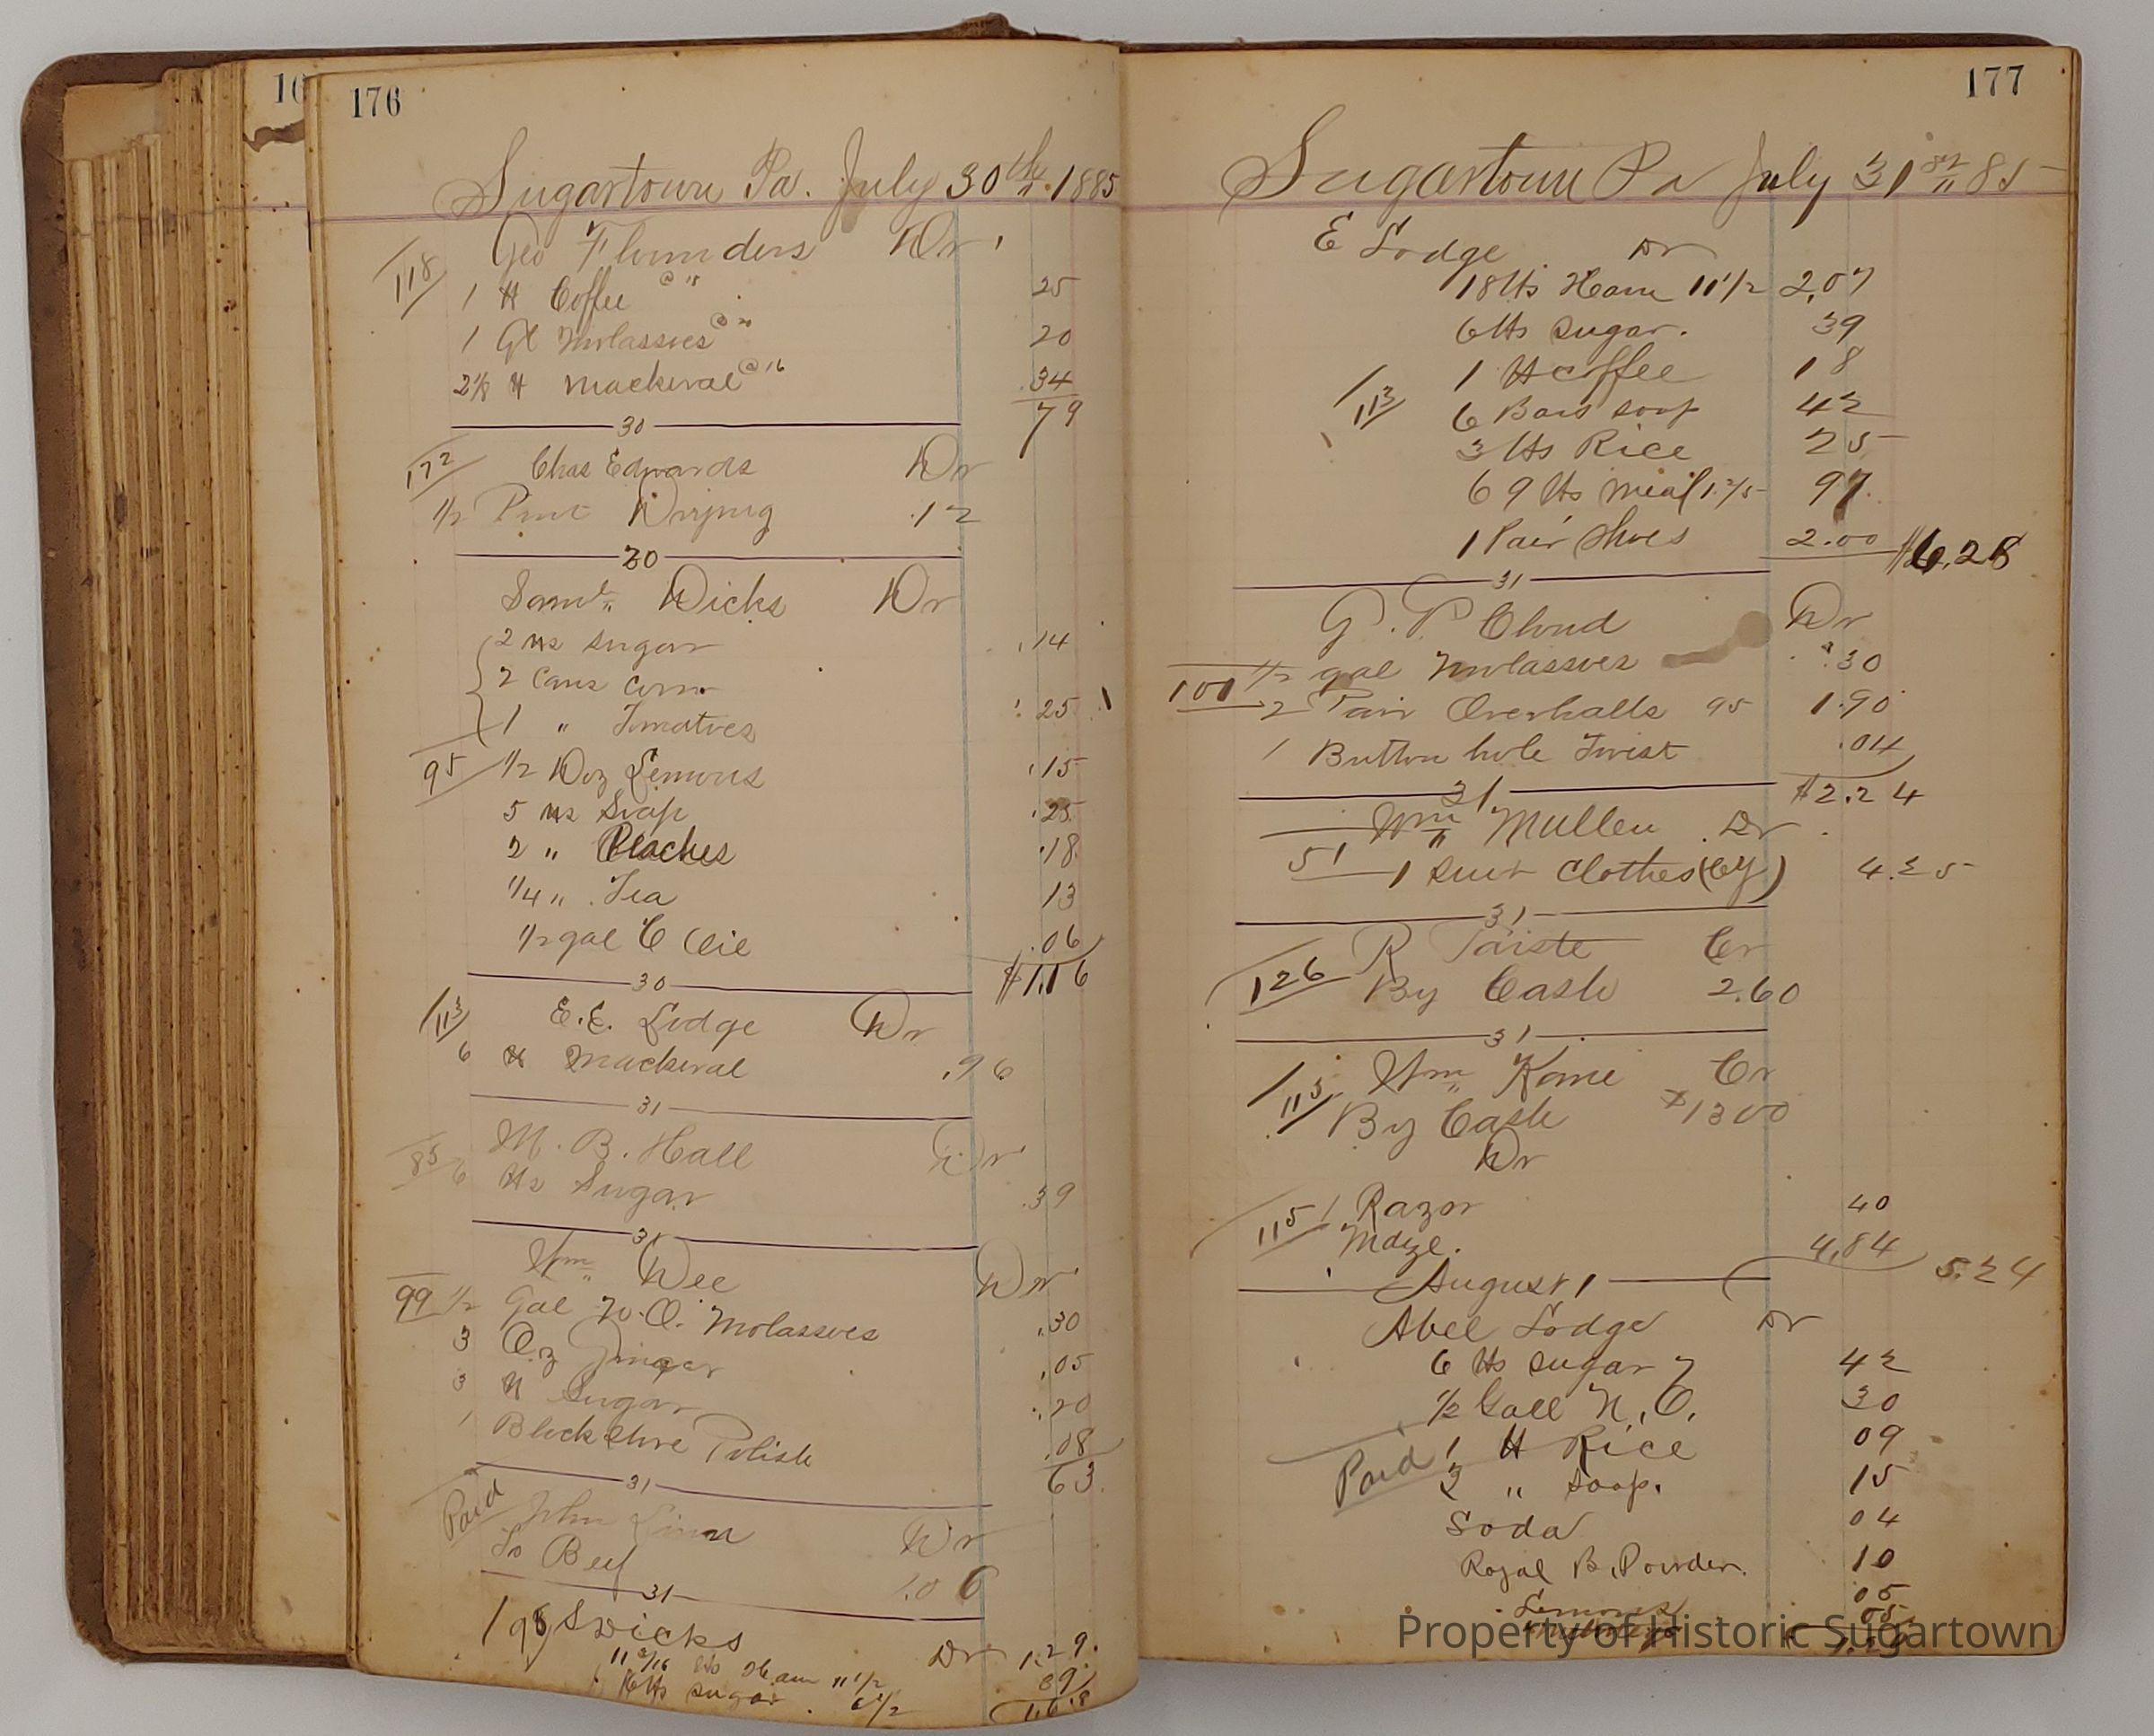 176
Sugartown Pa. July 30th 1885
118 Geo Flounders Dr
1 lb Coffee @ 25
1 Gl Molasses @ 20 20
2 1/8 lb Mackeral @ 16 34
79
30
172 Chas Edwards Dr
1/2 Pint .12
30
Saml Dicks Dr
2 lbs Sugar .14
2 Cans Corn
1 " Tomatoes .25
95 1/2 Doz Lemons .15
5 lbs Soap .25
2 " Peaches .18
1/4 " Tea 13
1/2 gal C Oil .06
$1.16
30
113 E. E. Lodge Dr
6 lb Mackeral .96
31
85 M. B. Hall Dr
6 lbs Sugar .39
31
Wm Dee Dr
99 1/2 Gal N. O. Molasses .30
3 Oz Ginger .05
3 lb Sugar .20
1 Block Stove Polish .08
63
31
Paid John Dr
To Beef 1.06
31
95 S Dicks Dr
11 3/16 lbs Ham 11 1/2 1.29
6 lbs sugar 6 1/2 39
1.68
177
Sugartown Pa July 31st 85
E Lodge Dr
18 lbs Ham 11 1/2 2.07
6 lbs Sugar. 39
1 lb coffee 18
113 6 Bars soap 42
3 lbs Rice 25
69 lbs meal 1 2/5 97
1 Pair Shoes 2.00 $6.28
31
G. P. Cloud Dr
101 1/2 gal Molasses .30
2 Pair Overhalls 95 1.90
1 Button hole Twist .04
31 $2.24
Wm Mullen Dr
51 1 Suit Clothes 4.25
31
R Paiste Cr
126 By Cash 2.60
31
Wm Kane Cr
115 By Cash $13 00
Dr
115 1 Razor 40
Mdze. 4.84 5.24
August 1
Abel Lodge Dr
6 lbs sugar 7 42
1/2 Gall N. O. 30
Paid 1 lb Rice 09
3 " Soap. 15
Soda 04
Royal B. Powder. 10
Lemons 05
05
Property of Historic Sugartown